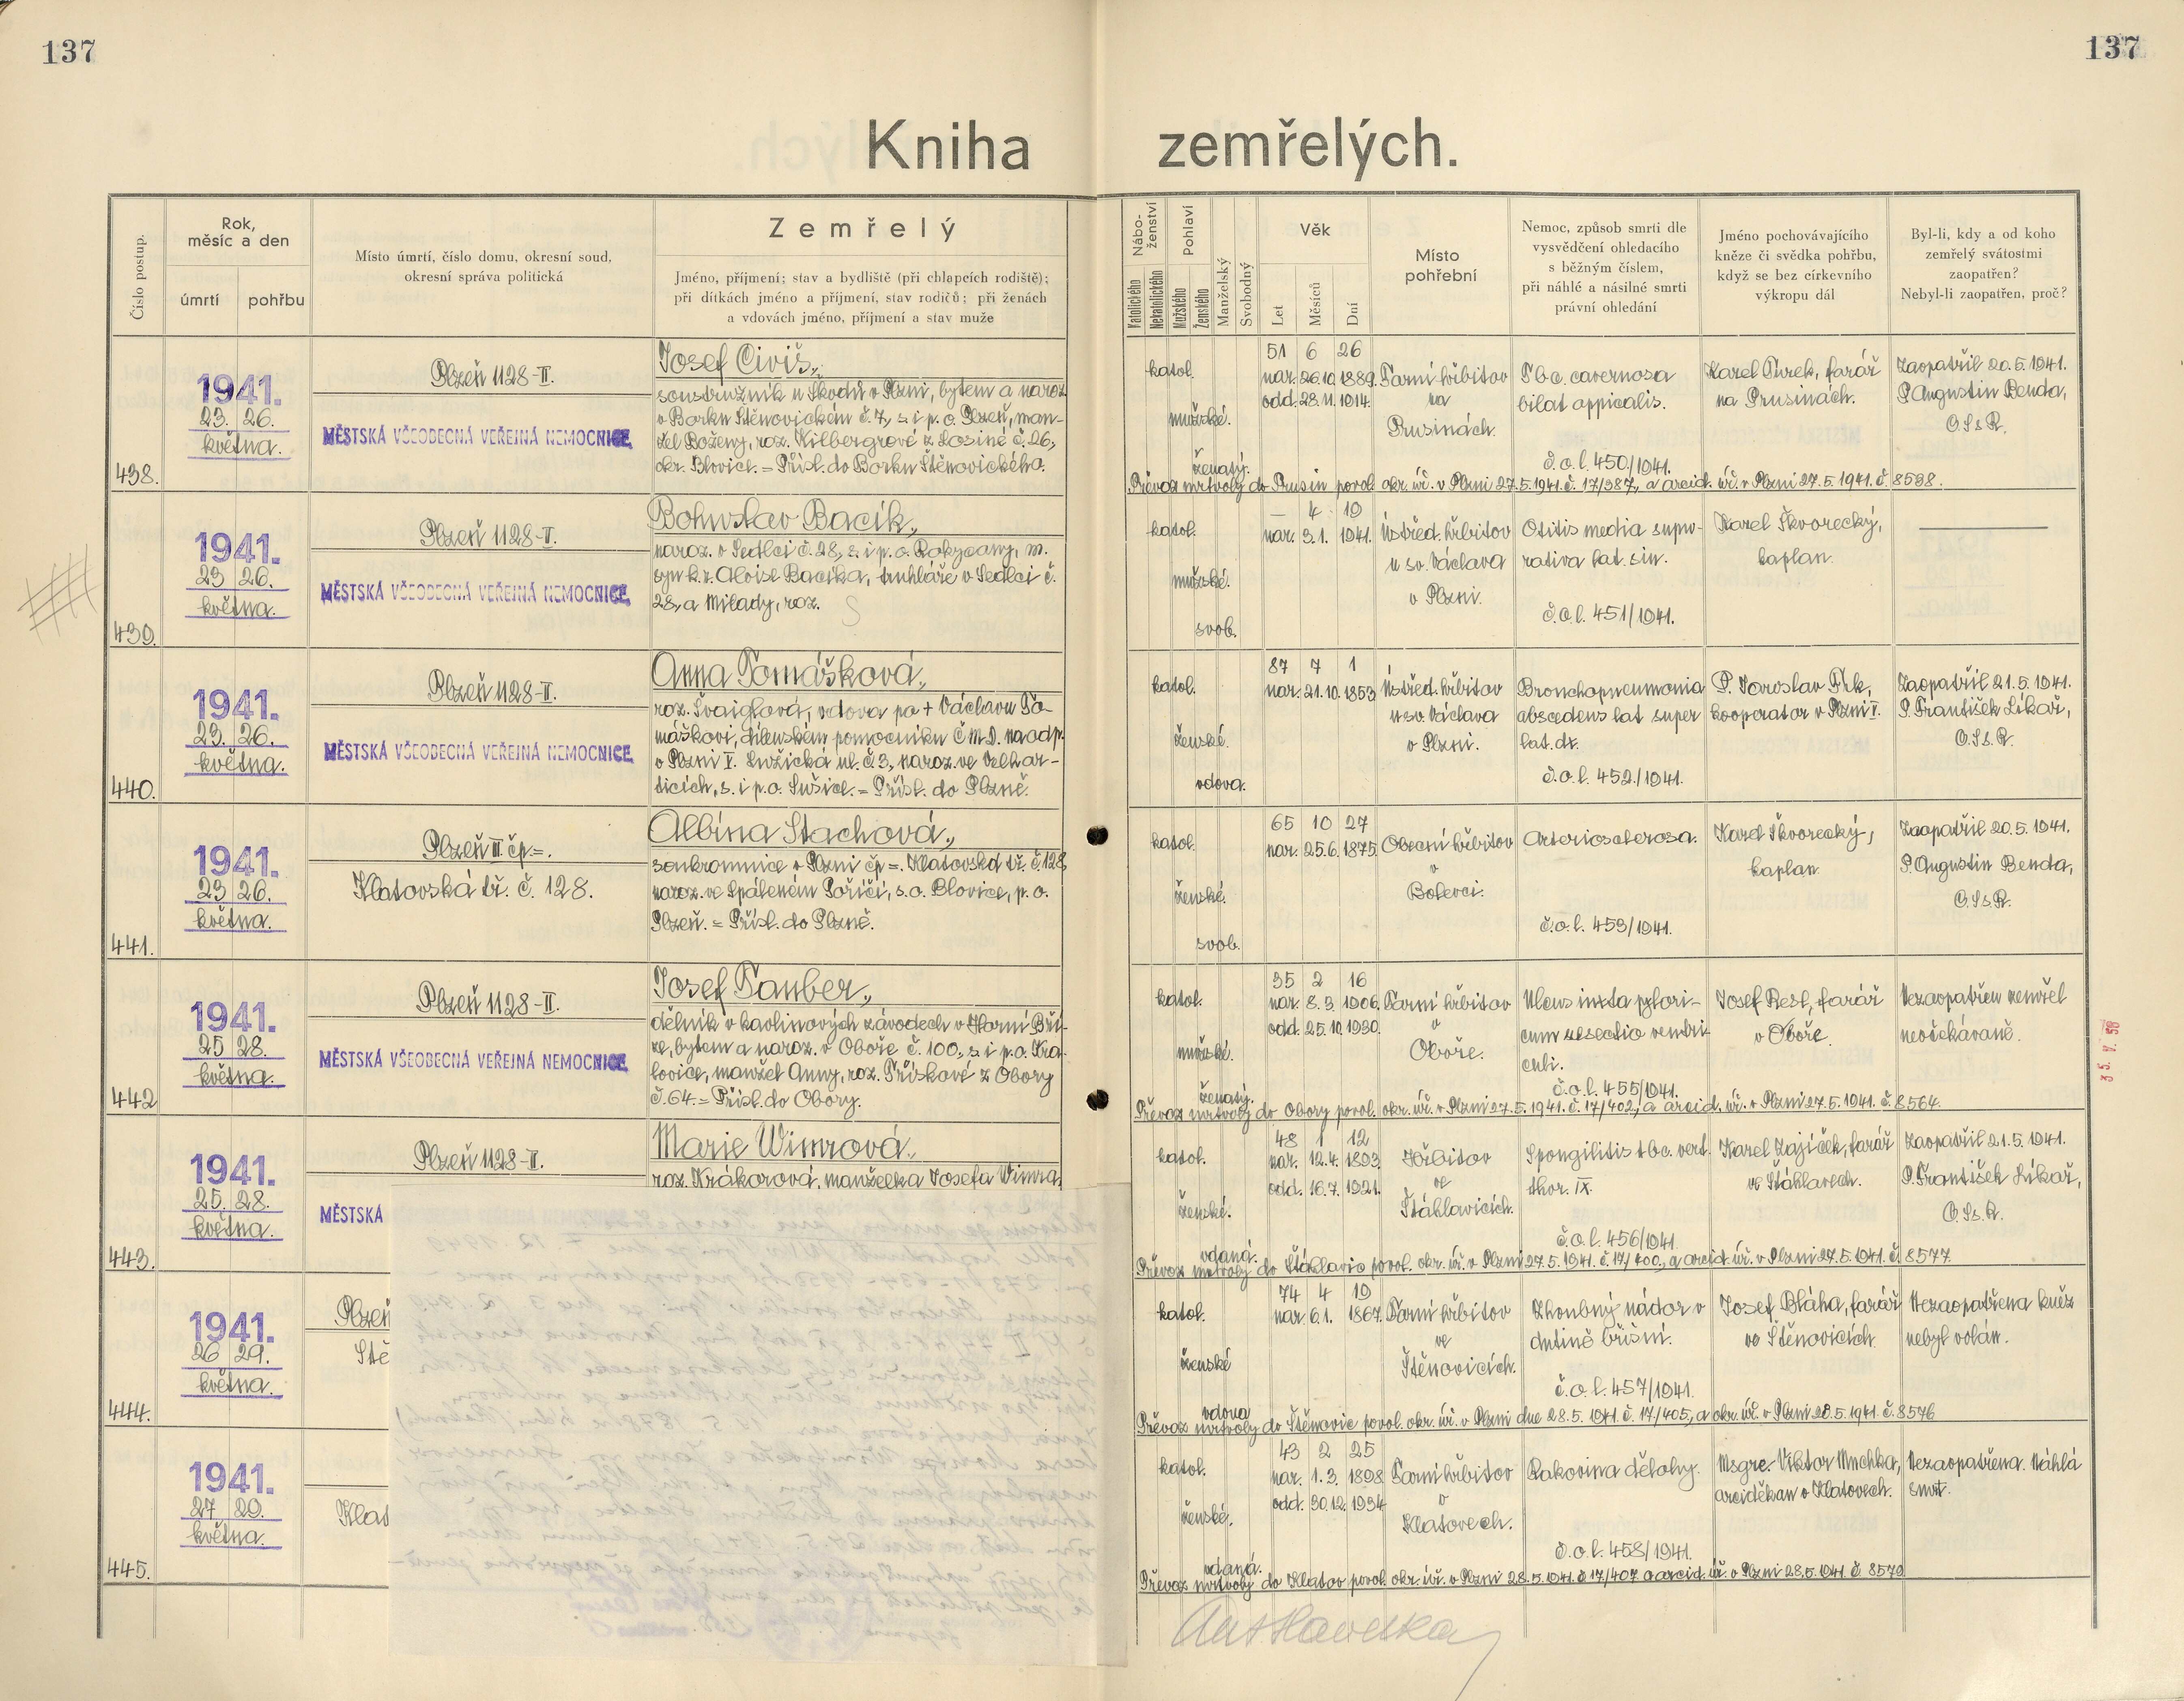 137
137
Kniha zemřelých.
Číslo postup.
Rok,
měsíc a den
úmrtí
pohřbu
Místo úmrtí, číslo domu, okresní soud,
okresní správa politická
Zemřelý
Jméno, příjmení; stav a bydliště (při chlapcích rodiště);
při dítkách jméno a příjmení, stav rodičů; při ženách
a vdovách jméno, příjmení a stav muže
Nábo-
ženství
Katolického
Nekatolického
Pohlaví
Mužského
Ženského
Manželský
Svobodný
Věk
Let
Měsíců
Dní
Místo
pohřební
Nemoc, způsob smrti dle
vysvědčení ohledacího
s běžným číslem,
při náhlé a násilné smrti
právní ohledání
Jméno pochovávajícího
kněze či svědka pohřbu,
když se bez církevního
výkropu dál
Byl-li, kdy a od koho
zemřelý svátostmi
zaopatřen?
Nebyl-li zaopatřen, proč?
438.
1941.
23. 26.
května.
Plzeň 1128-II.
MĚSTSKÁ VŠEOBECNÁ VEŘEJNÁ NEMOCNICE
Josef Civiš,
soustružník u Škodů v Plzni, bytem a naroz.
v Borku Štěnovickém č. 7, s. i p. o. Plzeň, man-
žel Boženy, roz. Kilbergrové z Losiné č. 26,
okr. Blovice. = Přísl. do Borku Štěnovického.
katol.
mužské.
ženatý.
51 6 26
nar. 26.10. 1889.
odd. 28. 11. 1914.
Farní hřbitov
na
Prusinách.
Tbc. cavernosa
bilat appicalis.
č. o. l. 450/1941.
Karel Turek, farář
na Prusinách.
Zaopatřil 20. 5. 1941.
P. Augustin Benda,
O.Ss.R.
Převoz mrtvoly do Prusin povol. okr. úř. v Plzni 27. 5. 1941. č. 17/387, a arcid. úř. v Plzni 27. 5. 1941. č. 8598.
439.
1941.
23 26.
května.
Plzeň 1128-II.
MĚSTSKÁ VŠEOBECNÁ VEŘEJNÁ NEMOCNICE
Bohuslav Bacík,
naroz. v Sedlci č. 28, s. i p. o. Rokycany, m.
syn k. z. Aloise Bacíka, truhláře v Sedlci č.
28, a Milady, roz. S
katol.
mužské.
svob.
— 4 19
nar. 3. 1. 1941.
Ústřed. hřbitov
u sv. Václava
v Plzni.
Otitis media supu-
rativa lat. sin.
č. o. l. 451/1941.
Karel Škvorecký,
kaplan.
440.
1941.
23. 26.
května.
Plzeň 1128-II.
MĚSTSKÁ VŠEOBECNÁ VEŘEJNÁ NEMOCNICE
Anna Tomášková,
roz. Švaiglová, vdova po + Václavu To-
máškovi, dílenském pomocníku ČMD. na odp.
v Plzni I. Lužická ul. č. 3, naroz. ve Velhar-
ticích, s. i p. o. Sušice. = Přísl. do Plzně.
katol.
ženské.
vdova.
87 7 1
nar. 21. 10. 1853
Ústřed. hřbitov
u sv. Václava
v Plzni.
Bronchopneumonia
abscedens lat super
lat. dx.
č. o. l. 452/1941.
P. Jaroslav Frk,
kooperator v Plzni I.
Zaopatřil 21. 5. 1941.
P. František Líkař,
O.Ss.R.
441.
1941.
23 26.
května.
Plzeň III čp. =.
Klatovská tř. č. 128.
Albína Stachová,
soukromnice v Plzni čp =. Klatovská tř. č. 128
naroz. ve Spáleném Poříčí, s. o. Blovice, p. o.
Plzeň. = Přísl. do Plzně.
katol.
ženské.
svob.
65 10 27
nar. 25. 6. 1875.
Obecní hřbitov
v
Bolevci.
Arteriosclerosa.
č. o. l. 453/1941.
Karel Škvorecký,
kaplan.
Zaopatřil 20. 5. 1941.
P. Augustin Benda,
O.Ss.R.
442
1941.
25 28.
května.
Plzeň 1128-II.
MĚSTSKÁ VŠEOBECNÁ VEŘEJNÁ NEMOCNICE
Josef Tauber,
dělník v kaolinových závodech v Horní Bří-
ze, bytem a naroz. v Oboře č. 100, s. i p. o. Kra-
lovice, manžel Anny, roz. Příškové z Obory
č. 64. = Přísl. do Obory.
katol.
mužské.
ženatý.
35 2 16
nar. 8. 3. 1906.
odd. 25. 10. 1930.
Farní hřbitov
v
Oboře.
Ulcus iuxta pylori-
cum resectio ventri-
culi.
č. o. l. 455/1941.
Josef Resl, farář
v Oboře.
Nezaopatřen zemřel
neočekávaně.
Převoz mrtvoly do Obory povol. okr. úř. v Plzni 27. 5. 1941. č. 17/402, a arcid. úř. v Plzni 27. 5. 1941. č. 8564.
443.
1941.
25. 28.
května.
Plzeň 1128-II.
MĚSTSKÁ
Marie Wimrová,
roz. Krákorová, manželka Josefa Wimra,
katol.
ženské.
vdaná.
48 1 12
nar. 12. 4. 1893
odd. 16. 7. 1921.
Hřbitov
ve
Štáhlavicích.
Spongilitis tbc. vert.
thor. IX.
č. o. l. 456/1941
Karel Zajíček, farář
ve Štáhlavech.
Zaopatřil 21. 5. 1941.
P. František Líkař,
O.Ss.R.
Převoz mrtvoly do Štáhlavic povol. okr. úř. v Plzni 27. 5. 1941. č. 17/400, a arcid. úř. v Plzni 27. 5. 1941. č. 8577.
444.
1941.
26 29.
května.
Plzeň
Stě
katol.
ženské
vdova
74 4 19
nar. 6. 1. 1867.
Farní hřbitov
ve
Štěnovicích.
Zhoubný nádor v
dutině břišní.
č. o. l. 457/1941.
Josef Bláha, farář
ve Štěnovicích
Nezaopatřena kněz
nebyl volán.
Převoz mrtvoly do Štěnovic povol. okr. úř. v Plzni dne 28. 5. 1941. č. 17/405, a okr. úř. v Plzni 28. 5. 1941. č. 8576
445.
1941.
27 29.
května.
Klat
katol.
ženské.
vdaná.
43 2 25
nar. 1. 3. 1898
odd. 30. 12. 1934
Farní hřbitov
v
Klatovech.
Rakovina dělohy.
č. o. l. 458/1941.
Msgre. Viktor Muchka,
arciděkan v Klatovech.
Nezaopatřena. Náhlá
smrt.
Převoz mrtvoly do Klatov povol. okr. úř. v Plzni 28. 5. 1941. č. 17/407 a arcid. úř. v Plzni 28. 5. 1941. č. 8579